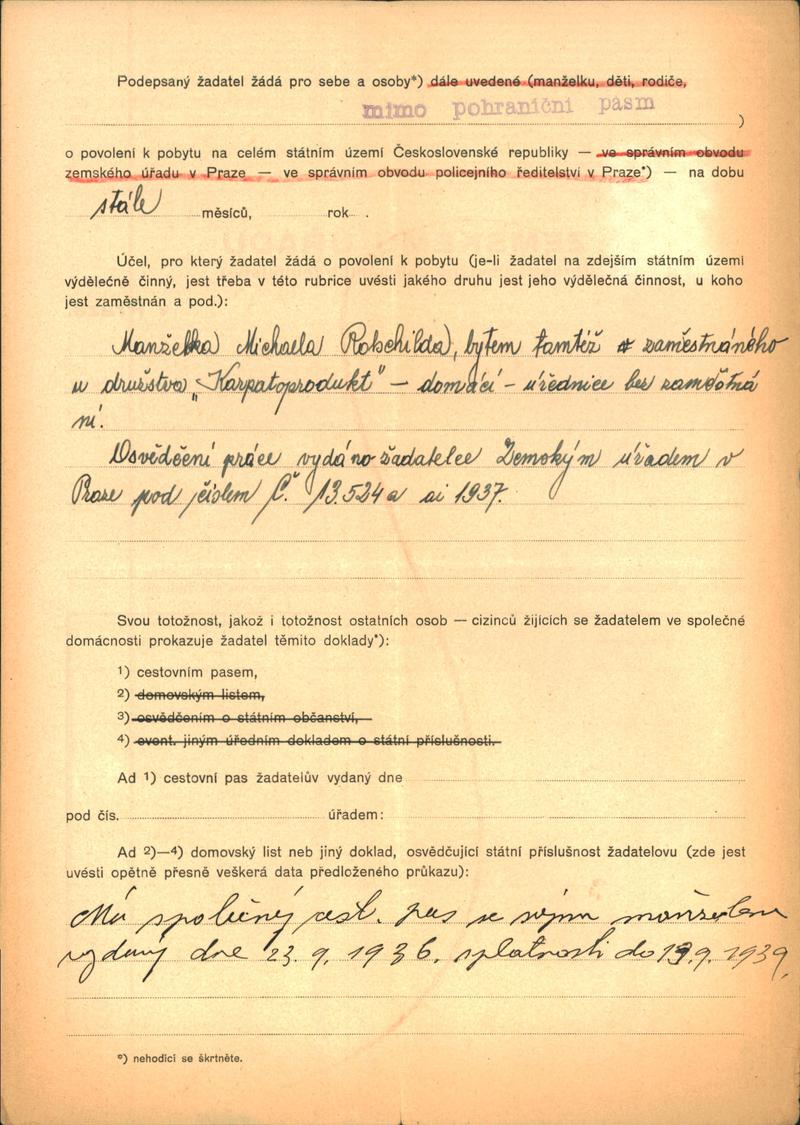 Podepsaný žadatel žádá pro sebe a osoby*) dále uvedené (manželku, děti, rodiče,
mimo pohraniční pasm
)
o povolení k pobytu na celém státním území Československé republiky — ve správním obvodu
zemského úřadu v Praze — ve správním obvodu policejního ředitelství v Praze*) — na dobu
stále měsíců, rok .
Účel, pro který žadatel žádá o povolení k pobytu (je-li žadatel na zdejším státním území
výdělečně činný, jest třeba v této rubrice uvésti jakého druhu jest jeho výdělečná činnost, u koho
jest zaměstnán a pod.):
Manželka Michaela Rotschilda, bytem tamtéž zaměstnáného
u družstva „Karpatoprodukt" – domácí – úřednice bez zaměstná
ní.
Osvědčení práce vydáno žadatelce Zemským úřadem v
Praze pod číslem Č. 13.524 a ai 1937.
Svou totožnost, jakož i totožnost ostatních osob — cizinců žijících se žadatelem ve společné
domácnosti prokazuje žadatel těmito doklady*):
1) cestovním pasem,
2) domovským listem,
3) osvědčením o státním občanství,
4) event. jiným úředním dokladem o státní příslušnosti.
Ad 1) cestovní pas žadatelův vydaný dne
pod čís. úřadem:
Ad 2)—4) domovský list neb jiný doklad, osvědčující státní příslušnost žadatelovu (zde jest
uvésti opětně přesně veškerá data předloženého průkazu):
Má společný cest. pas se svým manželem
vydaný dne 23. 9. 1936. splatností do 19.9. 1939.
*) nehodící se škrtněte.